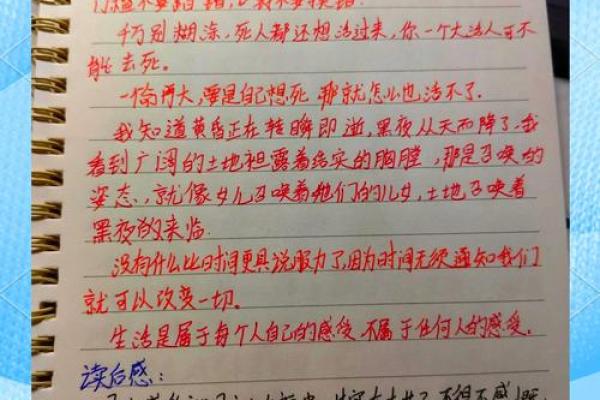 门槛不要踏错,口袋不要摸错.
千万别糊涂,死人都还想活过来,你一个大活人可不
能去死.
再大,要是自己想死,那就怎么也活不了.
我知道黄昏正在转瞬即逝,黑夜从天而降了.我
看到广阔的土地袒露着结实的胸膛,那是召唤的
姿态,就像女儿召唤着她们的儿女,土地召唤着
黑夜的来临.
没有什么比时间更具说服力了,因为时间无须通知我们
就可以改变一切.
生活是属于每个人自己的感受,不属于任何人的感受.
读后感:
不得不感慨,